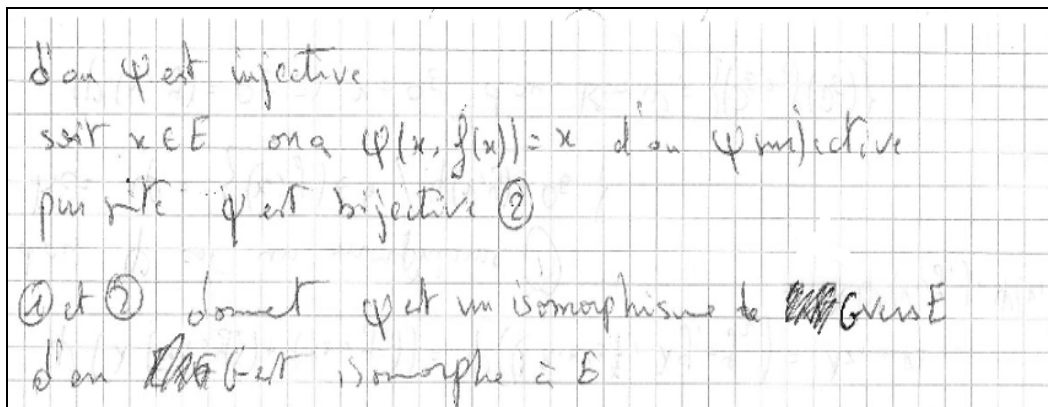 d'ou φ est injective
soit x ∈ E on a φ(x, f(x)) = x d'ou φ surjective
par suite φ est bijective ②
① et ② donnet φ est un isomorphisme de G vers E
d'ou G est isomorphe à E